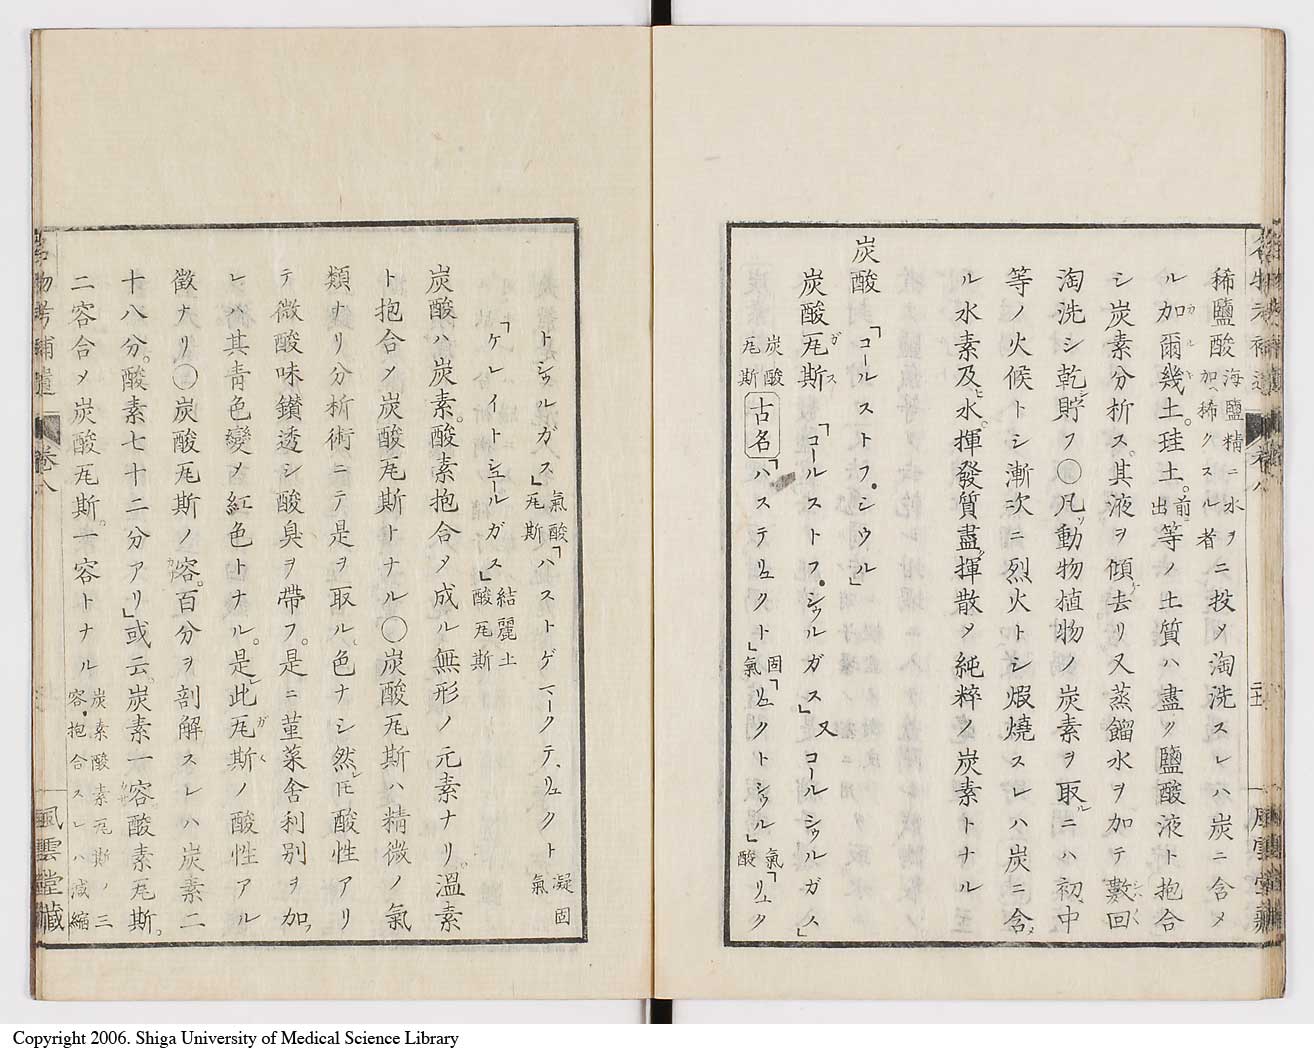 稀鹽酸 海鹽精ニ水ヲ加ヘ稀クスル者 ニ投〆淘洗スレハ炭ニ含メ
ル加爾幾土。珪土。前出等ノ土質ハ盡ク鹽酸液ト抱合
シ炭素分析ス。其液ヲ傾去リ又蒸餾水ヲ加テ數回
淘洗シ乾貯フ○凡動物植物ノ炭素ヲ取ルニハ初中
等ノ火候トシ漸次ニ烈火トシ煆燒スレハ炭ニ含メ
ル水素及ヒ水。揮發質盡ク揮散〆純粹ノ炭素トナル
炭酸「コールストフ・シウル」
炭酸瓦斯「コールストフ・シウルガス」又コールシウルガス」
炭酸瓦斯 古名「ハステリュクト」固氣「リュクトシウル」氣酸「リュク
トシウルガス」氣酸瓦斯「ハストゲマークテ、リュクト 凝固氣
「ケレイトシュールガス」結麗土酸瓦斯
炭酸ハ炭素。酸素抱合〆成ル無形ノ元素ナリ。溫素
ト抱合〆炭酸瓦斯トナル○炭酸瓦斯ハ精微ノ氣
類ナリ分析術ニテ是ヲ取ル、色ナシ然レ𪜈酸性アリ
テ微酸味鑚透シ酸臭ヲ帶フ。是ニ菫菜舍利別ヲ加
レハ其青色變〆紅色トナル。是レ此瓦斯ノ酸性アル
徵ナリ○炭酸瓦斯ノ容。百分ヲ剖解スレハ炭素二
十八分。酸素七十二分アリ」或云。炭素一容酸素瓦斯。
二容合〆炭酸瓦斯。一容トナル 炭素酸素瓦斯ノ三容。抱合スレハ減縮
名物考補遺 卷八 風雲堂藏
Copyright 2006. Shiga University of Medical Science Library